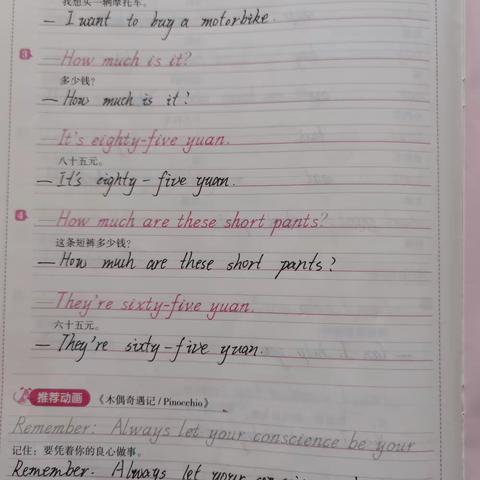 我想买一辆摩托车。
— I want to buy a motorbike.
3 — How much is it?
多少钱?
— How much is it?
It's eighty-five yuan.
八十五元。
— It's eighty-five yuan.
4 — How much are these short pants?
这条短裤多少钱?
— How much are these short pants?
— They're sixty-five yuan.
六十五元。
— They're sixty-five yuan.
推荐动画 《木偶奇遇记/Pinocchio》
Remember: Always let your conscience be your
记住:要凭着你的良心做事。
Remember. Always let your